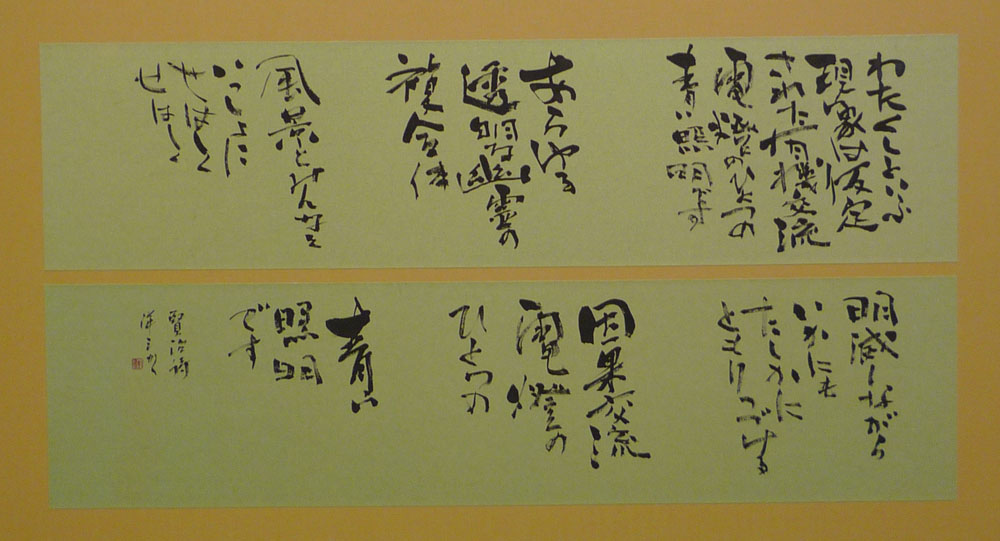 わたくしといふ
現象は仮定
された有機交流
電燈のひとつの
青い照明です
あらゆる
透明な幽霊の
複合体
風景やみんなと
いっしょに
せはしく
せはしく
明滅しながら
いかにも
たしかに
ともりつづける
因果交流
電燈の
ひとつの
青い
照明
です
賢治詩